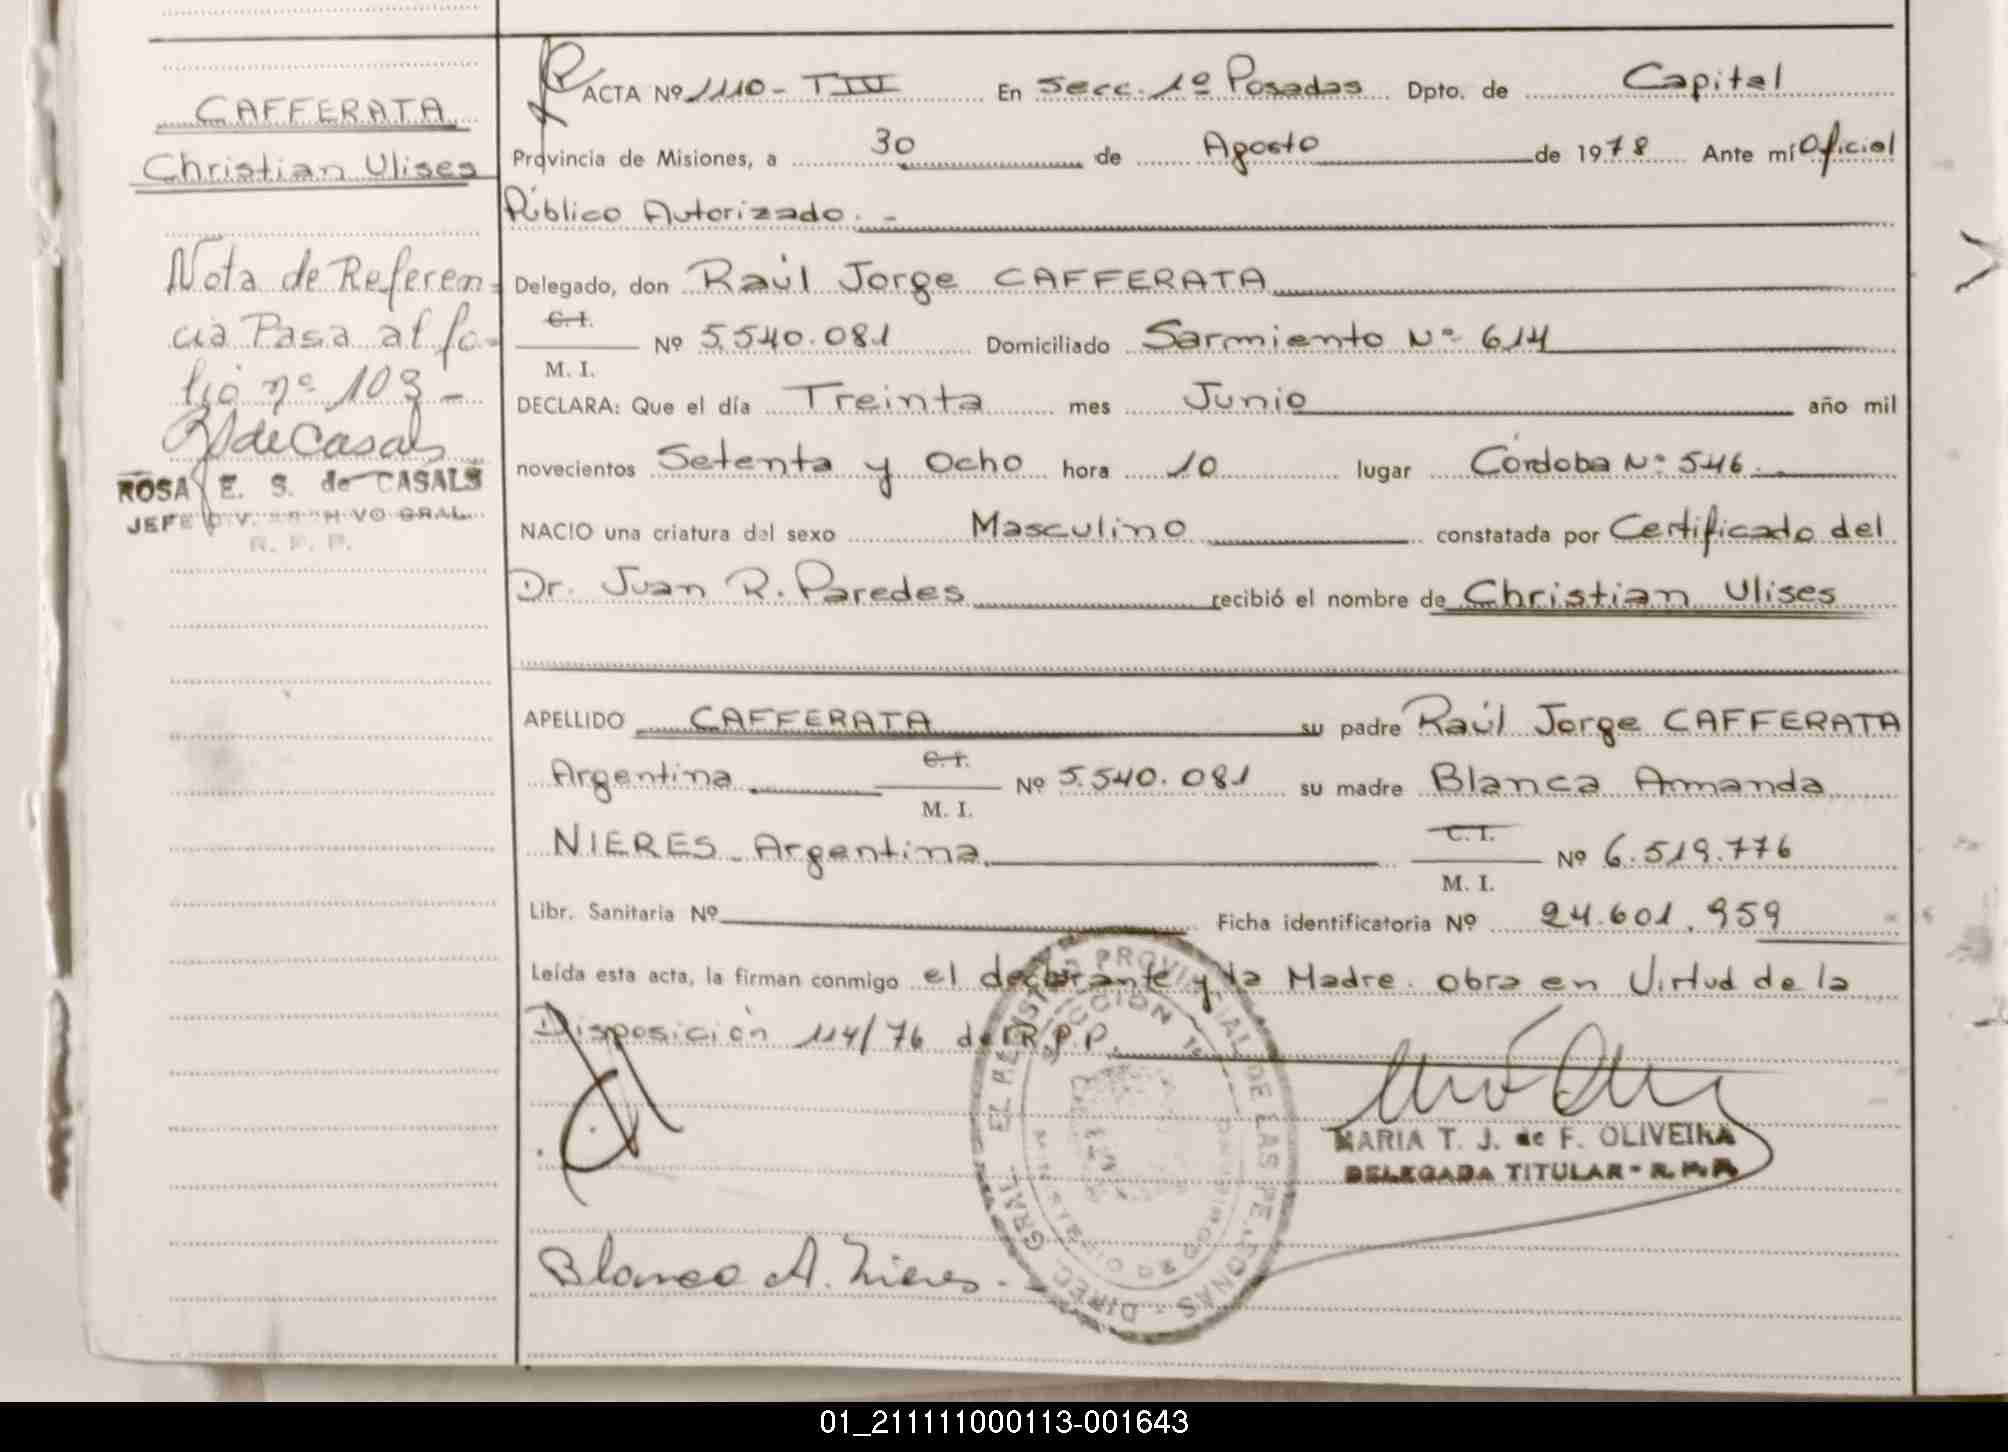 CAFFERATA
Christian Ulises
Nota de Referen-
cia Pasa al fo-
lio nº 103-
RSdeCasals
ROSA E. S. de CASALS
JEFE DIV. ARCHIVO GRAL.
R. P. P.
ACTA Nº 1110- TIII En Secc. 1º Posadas Dpto. de Capital
Provincia de Misiones, a 30 de Agosto de 1978 Ante mi Oficial
Público Autorizado.-
Delegado, don Raúl Jorge CAFFERATA
C.I.
M. I. Nº 5.540.081 Domiciliado Sarmiento Nº 614
DECLARA: Que el día Treinta mes Junio año mil
novecientos Setenta y Ocho hora 10 lugar Córdoba Nº 546.
NACIO una criatura del sexo Masculino constatada por Certificado del
Dr. Juan R. Paredes recibió el nombre de Christian Ulises
APELLIDO CAFFERATA su padre Raúl Jorge CAFFERATA
Argentina C.I. M. I. Nº 5.540.081 su madre Blanca Amanda
NIERES - Argentina. C.I. M. I. Nº 6.519.776
Libr. Sanitaria Nº Ficha identificatoria Nº 24.601.959
Leída esta acta, la firman conmigo el declarante y la Madre. obra en Virtud de la
Disposición 114/76 del R.P.P.
MARIA T. J. de F. OLIVEIRA
DELEGADA TITULAR - R. P. P.
Blanca A. Nieres.
DIREC. GRAL. EL REGISTRO PROVINCIAL DE LAS PERSONAS -
SECCION 1a
MISIONES
01_211111000113-001643